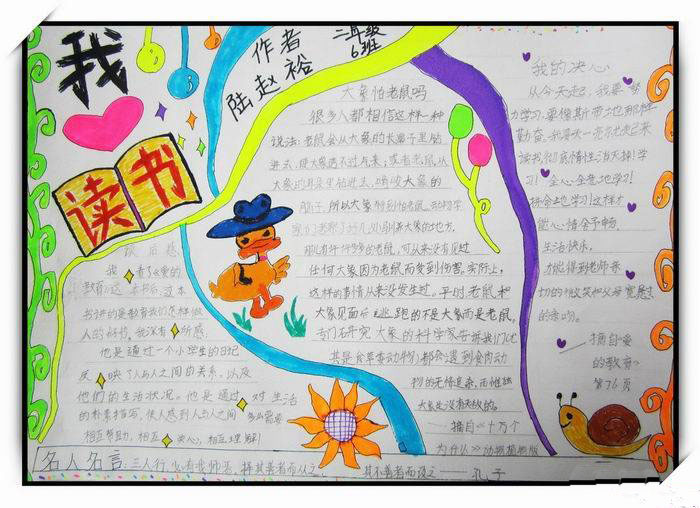 我
读书
作者
陆赵裕
三年级
6班
读后感
我看了《爱的
教育》这本书后，这本
书讲的是教育我们怎样做
人的好书。我深有所感。
他是通过一个小学生的日记
反映了人与人之间的关系，以及
他们的生活状况。他是通过对生活
的朴素描写，使人感到人与人之间
相互帮助，相互关心，相互理解！
大象怕老鼠吗
很多人都相信这样一种
说法：老鼠会从大象的长鼻子里钻
进去，使大象透不过气来；或者老鼠从
大象的耳朵里钻进去，
脑子，所以大象特别怕老鼠。
那儿有许许多多的老鼠，可从来没有见过
任何大象因为老鼠而受到伤害。实际上，
这样的事情从来没发生过。平时老鼠和
大象见面后，逃跑的不是大象而是老鼠，
专门研究大象的科学家告诉我们，
其是食草类动物们都会遇到食肉动
物的无情追杀，而惟独
大象生没有天敌的。
——摘自《十万个
为什么》动物植物版
我的决心
从今天起，我要努
力学习，要像斯带地那样
勤奋，我
习！全心全意地学习！
生活快乐，
才能得到老师亲
切的微笑和父母
的亲吻。
——摘自《爱
的教育》
第76页
名人名言：三人行，必有我师焉，择其善者而从之，其不善者而改之——孔子